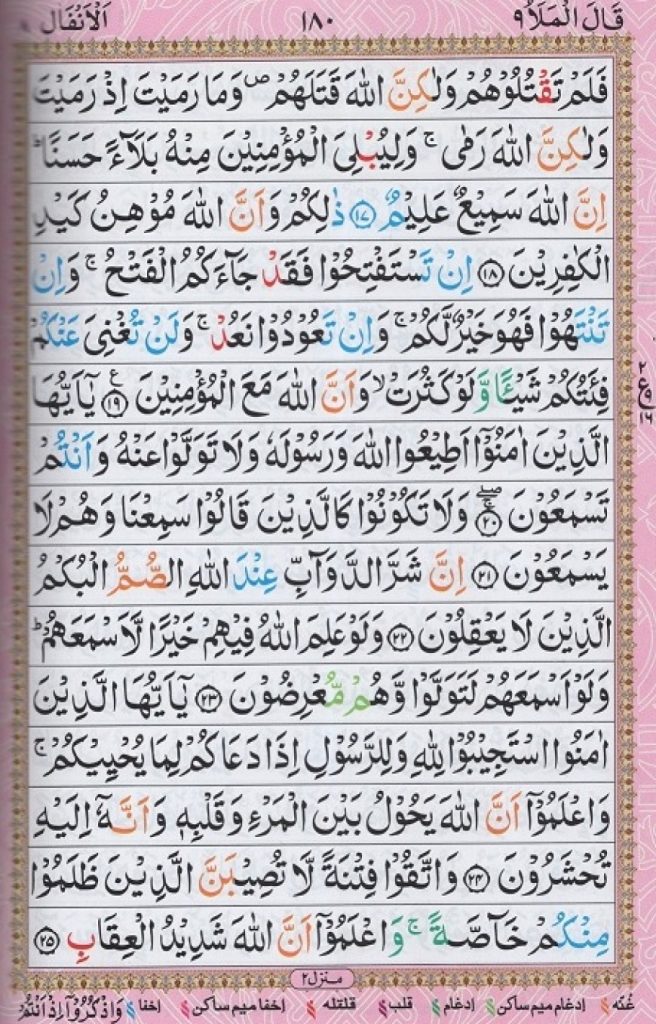 قَالَ الْمَلَاُ ٩ ١٨٠ اَلْاَنْفَال ٨
فَلَمْ تَقْتُلُوْهُمْ وَلٰكِنَّ اللّٰهَ قَتَلَهُمْ ۪ وَمَا رَمَيْتَ اِذْ رَمَيْتَ
وَلٰكِنَّ اللّٰهَ رَمٰى ۚ وَلِيُبْلِىَ الْمُؤْمِنِيْنَ مِنْهُ بَلَآءً حَسَنًا ؕ
اِنَّ اللّٰهَ سَمِيْعٌ عَلِيْمٌ ﴿١٧﴾ ذٰلِكُمْ وَاَنَّ اللّٰهَ مُوْهِنُ كَيْدِ
الْكٰفِرِيْنَ ﴿١٨﴾ اِنْ تَسْتَفْتِحُوْا فَقَدْ جَآءَكُمُ الْفَتْحُ ۚ وَاِنْ
تَنْتَهُوْا فَهُوَ خَيْرٌ لَّكُمْ ۚ وَاِنْ تَعُوْدُوْا نَعُدْ ۚ وَلَنْ تُغْنِىَ عَنْكُمْ
فِئَتُكُمْ شَيْـًٔا وَّلَوْ كَثُرَتْ ۙ وَاَنَّ اللّٰهَ مَعَ الْمُؤْمِنِيْنَ ﴿١٩﴾ ع يٰۤاَيُّهَا
الَّذِيْنَ اٰمَنُوْۤا اَطِيْعُوا اللّٰهَ وَرَسُوْلَهٗ وَلَا تَوَلَّوْا عَنْهُ وَاَنْتُمْ
تَسْمَعُوْنَ ﴿٢٠﴾ ۖ وَلَا تَكُوْنُوْا كَالَّذِيْنَ قَالُوْا سَمِعْنَا وَهُمْ لَا
يَسْمَعُوْنَ ﴿٢١﴾ اِنَّ شَرَّ الدَّوَآبِّ عِنْدَ اللّٰهِ الصُّمُّ الْبُكْمُ
الَّذِيْنَ لَا يَعْقِلُوْنَ ﴿٢٢﴾ وَلَوْ عَلِمَ اللّٰهُ فِيْهِمْ خَيْرًا لَّاَسْمَعَهُمْ ؕ
وَلَوْ اَسْمَعَهُمْ لَتَوَلَّوْا وَّهُمْ مُّعْرِضُوْنَ ﴿٢٣﴾ يٰۤاَيُّهَا الَّذِيْنَ
اٰمَنُوا اسْتَجِيْبُوْا لِلّٰهِ وَلِلرَّسُوْلِ اِذَا دَعَاكُمْ لِمَا يُحْيِيْكُمْ ۚ
وَاعْلَمُوْۤا اَنَّ اللّٰهَ يَحُوْلُ بَيْنَ الْمَرْءِ وَقَلْبِهٖ وَاَنَّهٗۤ اِلَيْهِ
تُحْشَرُوْنَ ﴿٢٤﴾ وَاتَّقُوْا فِتْنَةً لَّا تُصِيْبَنَّ الَّذِيْنَ ظَلَمُوْا
مِنْكُمْ خَآصَّةً ۚ وَاعْلَمُوْۤا اَنَّ اللّٰهَ شَدِيْدُ الْعِقَابِ ﴿٢٥﴾
منزل ٢
غُنّه ادغام میم ساکن ادغام قلب قلقله اخفا میم ساکن اخفا وَاذْكُرُوْۤا اِذْ اَنْتُمْ